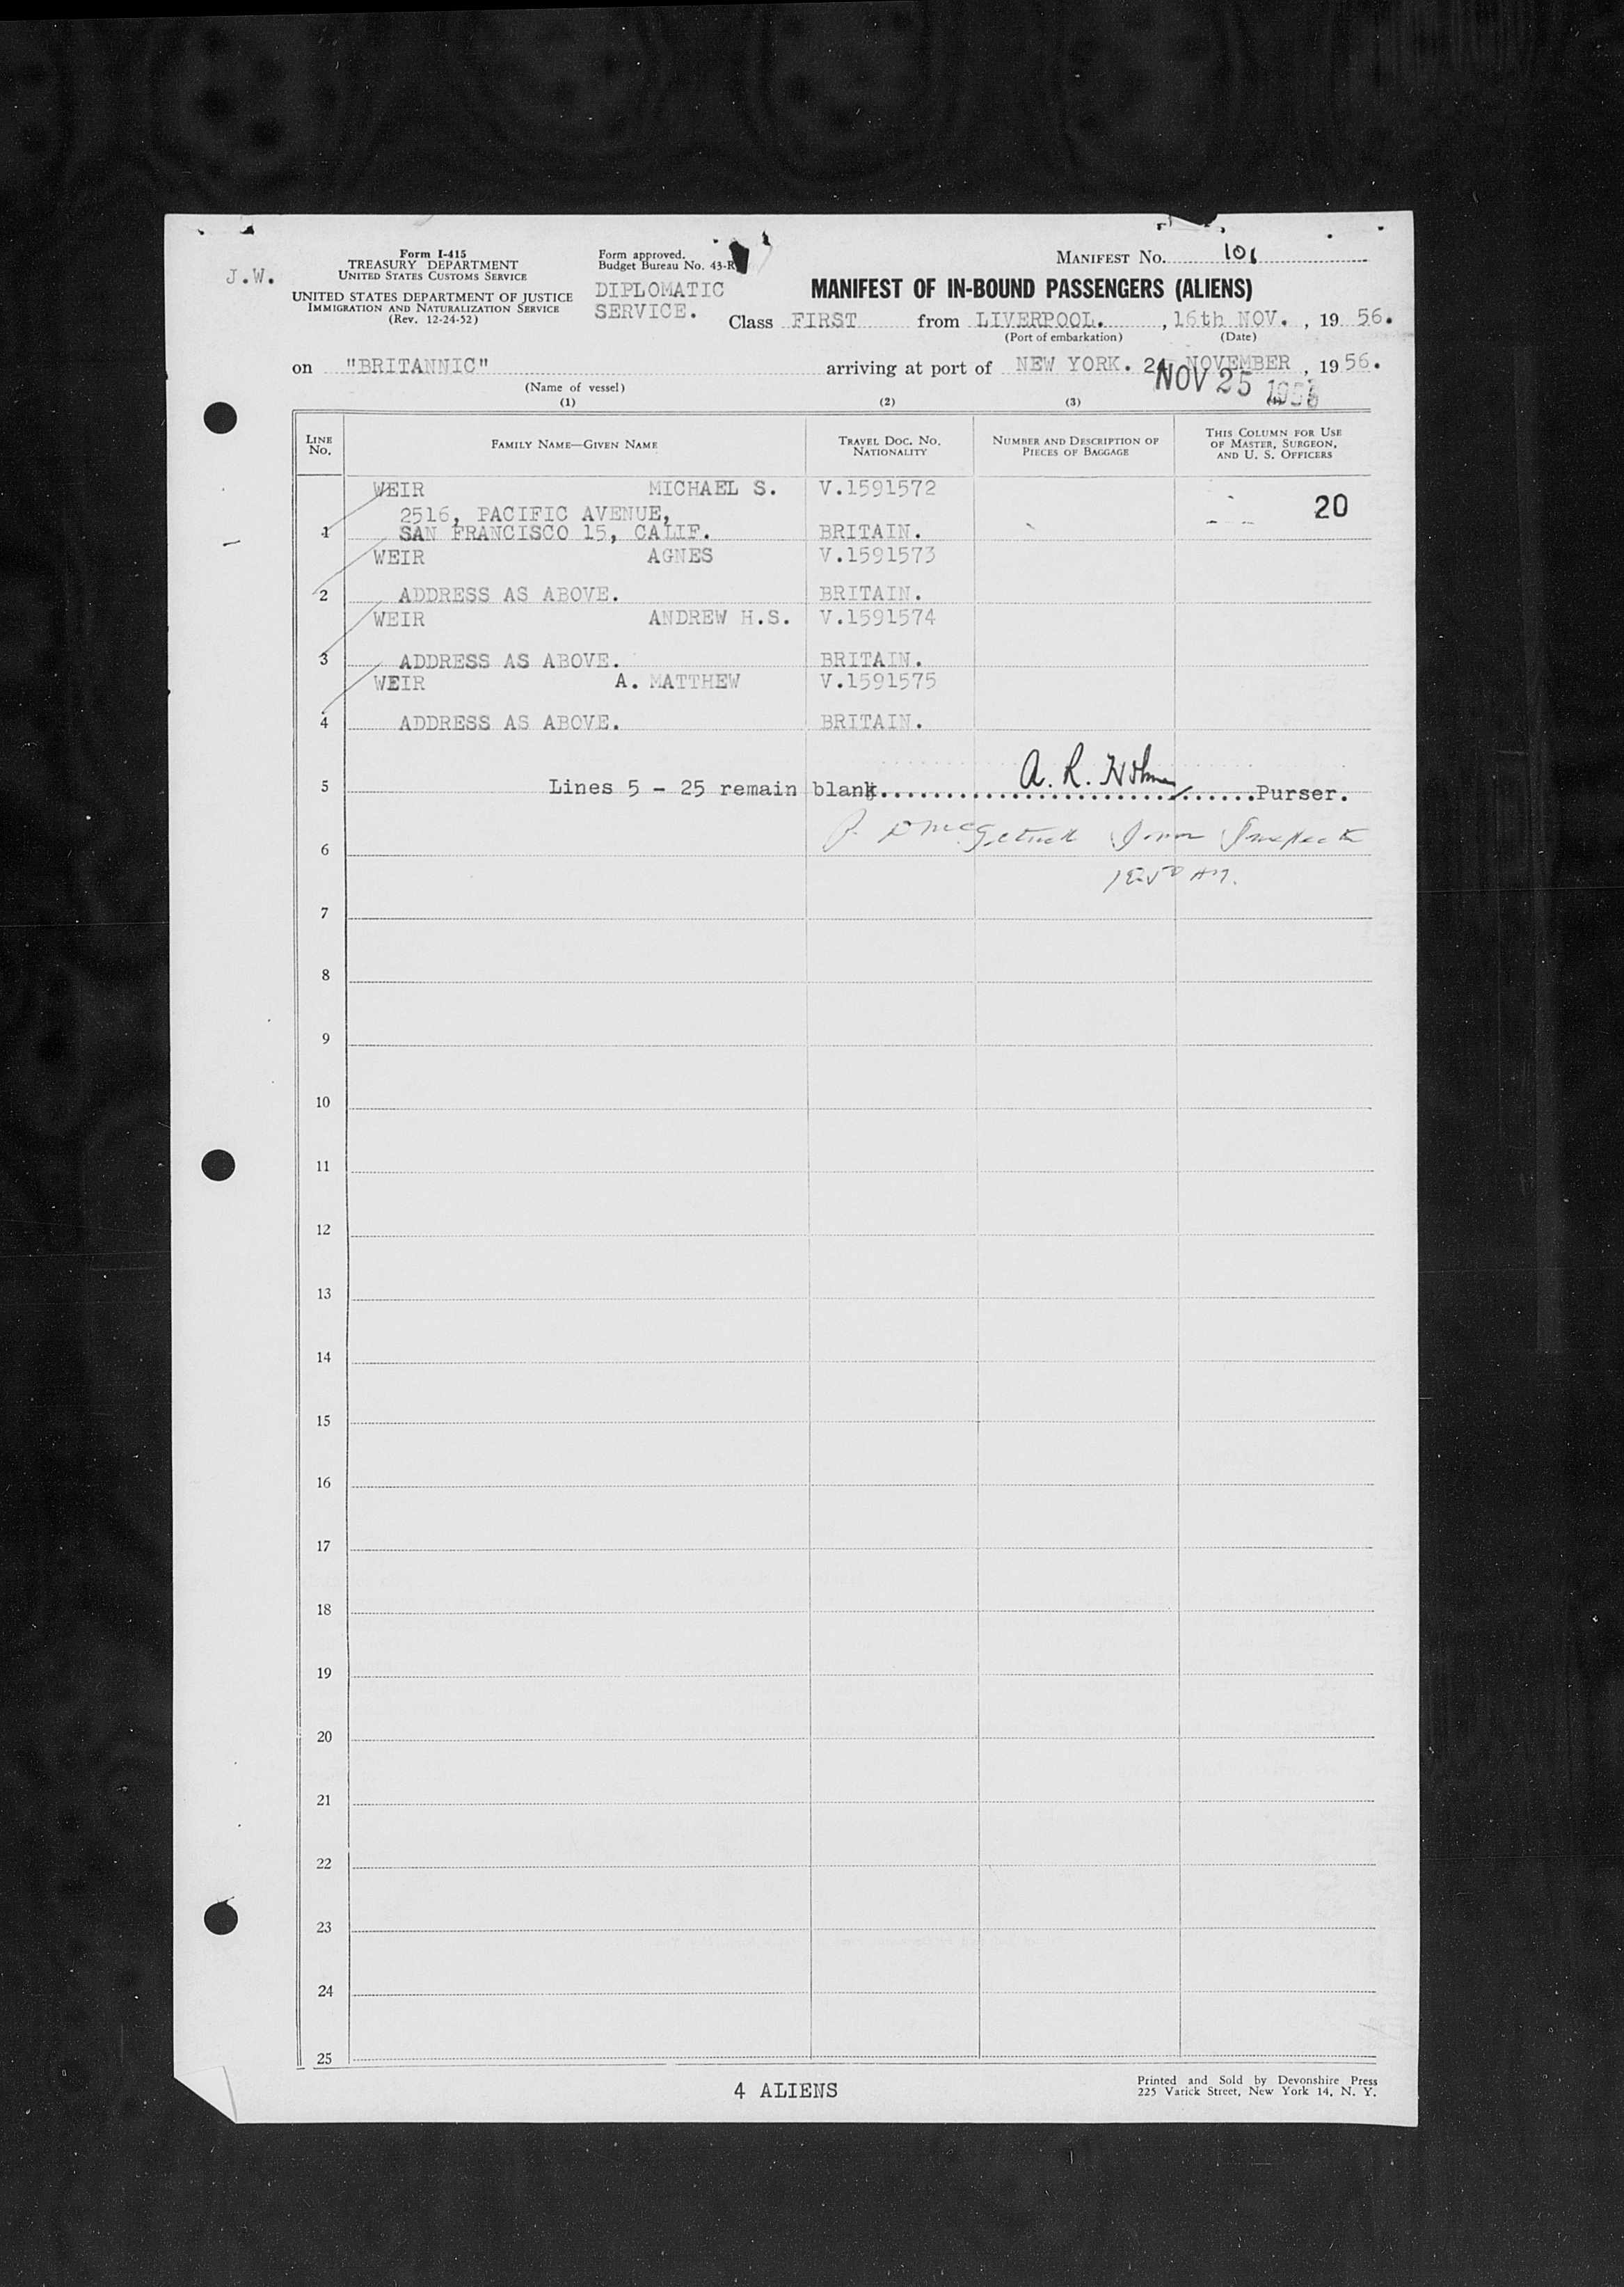 J.W.
Form I-415
TREASURY DEPARTMENT
UNITED STATES CUSTOMS SERVICE
UNITED STATES DEPARTMENT OF JUSTICE
IMMIGRATION AND NATURALIZATION SERVICE
(Rev. 12-24-52)
Form approved.
Budget Bureau No. 43-R
DIPLOMATIC
SERVICE.
MANIFEST No. 101
MANIFEST OF IN-BOUND PASSENGERS (ALIENS)
Class FIRST from LIVERPOOL. , 16th NOV. , 19 56.
(Port of embarkation) (Date)
on "BRITANNIC" arriving at port of NEW YORK. 24 NOVEMBER , 19 56.
(Name of vessel)
NOV 25 1956
(1) (2) (3)
LINE No. FAMILY NAME—GIVEN NAME TRAVEL DOC. NO. NATIONALITY NUMBER AND DESCRIPTION OF PIECES OF BAGGAGE THIS COLUMN FOR USE OF MASTER, SURGEON, AND U. S. OFFICERS
WEIR MICHAEL S. V.1591572
20
2516, PACIFIC AVENUE,
1 SAN FRANCISCO 15, CALIF. BRITAIN.
WEIR AGNES V.1591573
2 ADDRESS AS ABOVE. BRITAIN.
WEIR ANDREW H.S. V.1591574
3 ADDRESS AS ABOVE. BRITAIN.
WEIR A. MATTHEW V.1591575
4 ADDRESS AS ABOVE. BRITAIN.
A. R.
5 Lines 5 - 25 remain blank. Purser.
6
7
8
9
10
11
12
13
14
15
16
17
18
19
20
21
22
23
24
25
4 ALIENS
Printed and Sold by Devonshire Press
225 Varick Street, New York 14, N. Y.